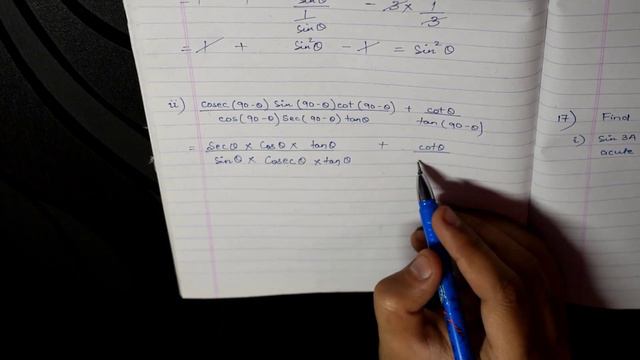 sinθ - 3 × 1
1 3
sinθ
= 1 + sin²θ - 1 = sin²θ
ii) cosec(90-θ) sin(90-θ) cot(90-θ) + cotθ
cos(90-θ) sec(90-θ) tanθ tan(90-θ)
= secθ × cosθ × tanθ + cotθ
sinθ × cosecθ × tanθ
17) Find
i) sin 3A
acute